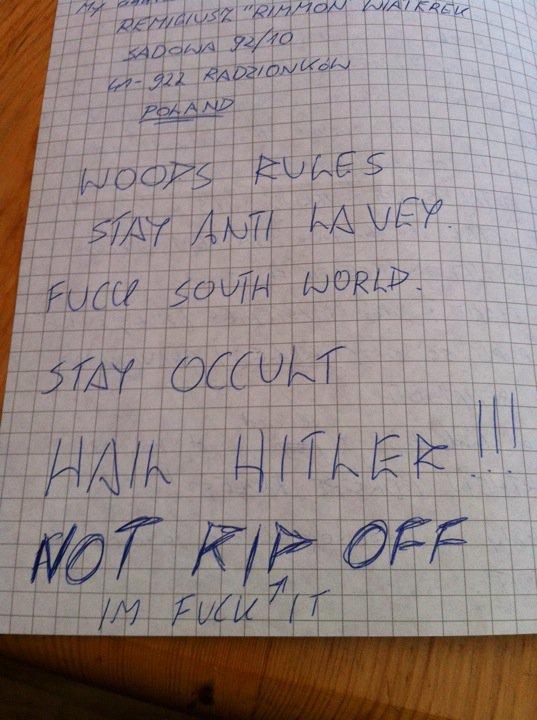 MY
REMIGIUSZ "RIMMON" WIATEREK
SADOWA 92/10
41-922 RADZIONKÓW
POLAND
WOODS RULES
STAY ANTI LA VEY.
FUCK SOUTH WORLD.
STAY OCCULT
HAIL HITLER!!!
NOT RIP OFF
IM FUCK IT